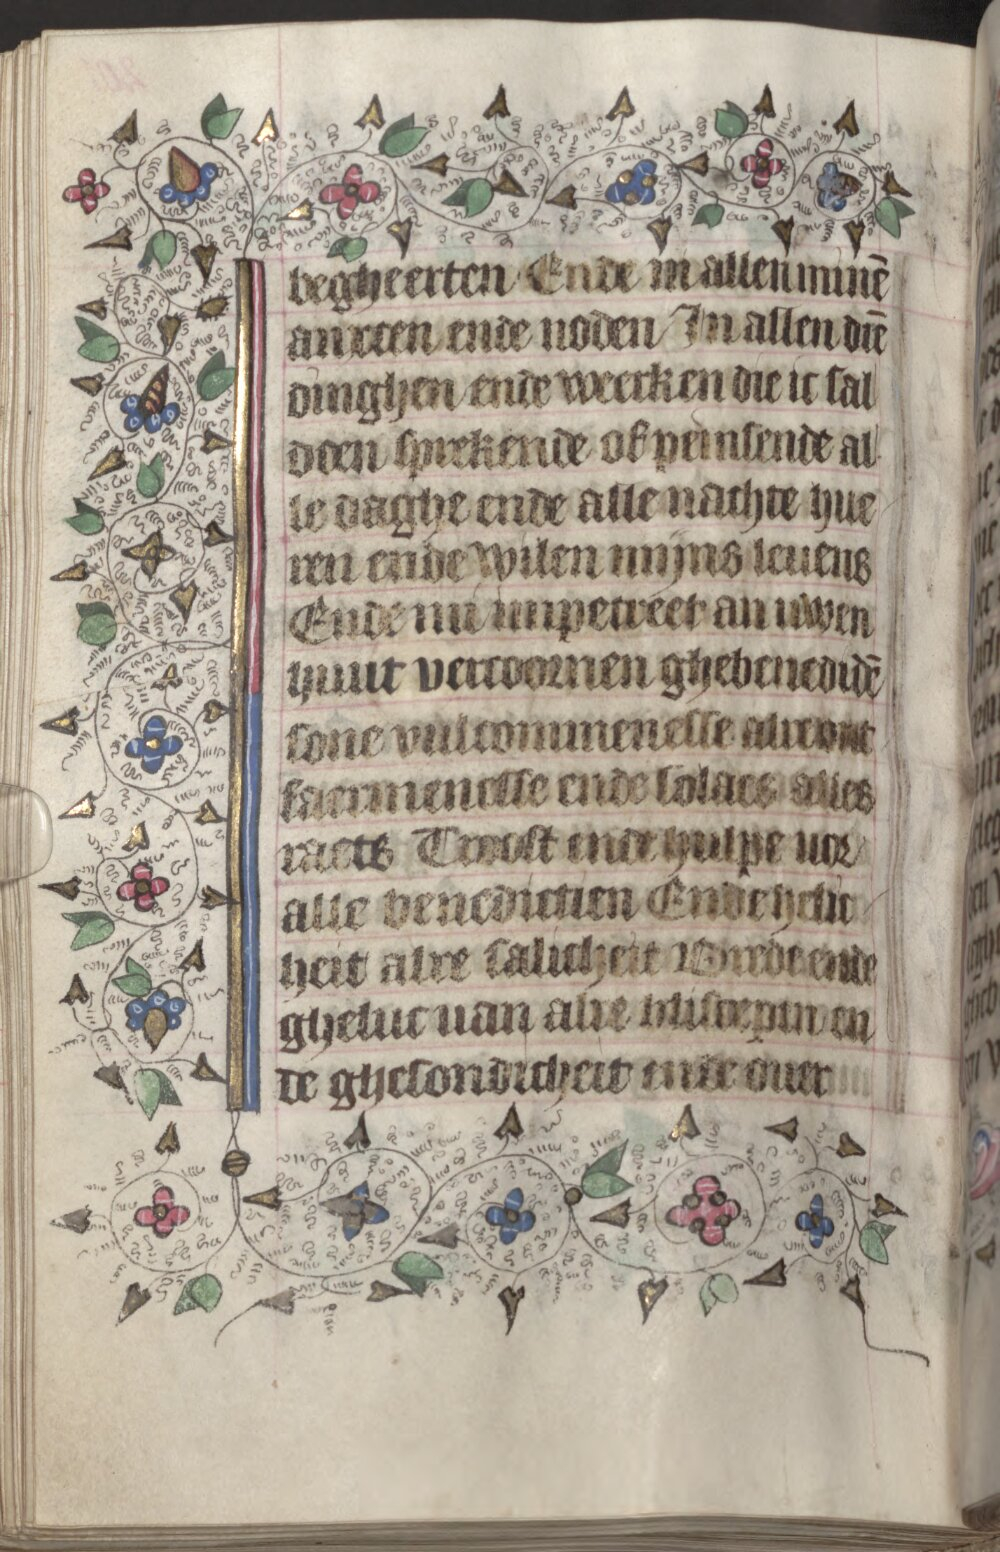 begheerten Ende in allen minē
anxten ende noden In allen diē
dinghen ende weerken die ic sal
doen sprekende of peinsende al
le daghe ende alle nachte hue
ren ende wilen mijns leuens
Ende mi impetreet an uwen
huut vercoornen ghebenedidē
sone vulcommenesse alre ont
faermenesse ende solaes alles
raets Troost ende hulpe uor
alle benedictien Ende helic
heit alre salicheit Vrede ende
gheluc uan alre bliscepin en
de ghesondicheit ende ouer